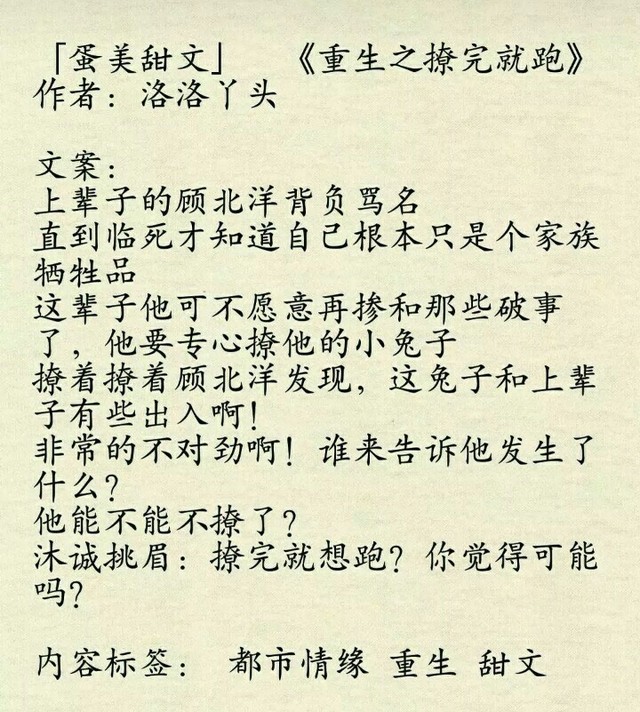 「蛋美甜文」 《重生之撩完就跑》
作者：洛洛丫头
文案：
上辈子的顾北洋背负骂名
直到临死才知道自己根本只是个家族
牺牲品
这辈子他可不愿意再掺和那些破事
了，他要专心撩他的小兔子
撩着撩着顾北洋发现，这兔子和上辈
子有些出入啊！
非常的不对劲啊！谁来告诉他发生了
什么？
他能不能不撩了？
沐诚挑眉：撩完就想跑？你觉得可能
吗？
内容标签： 都市情缘 重生 甜文